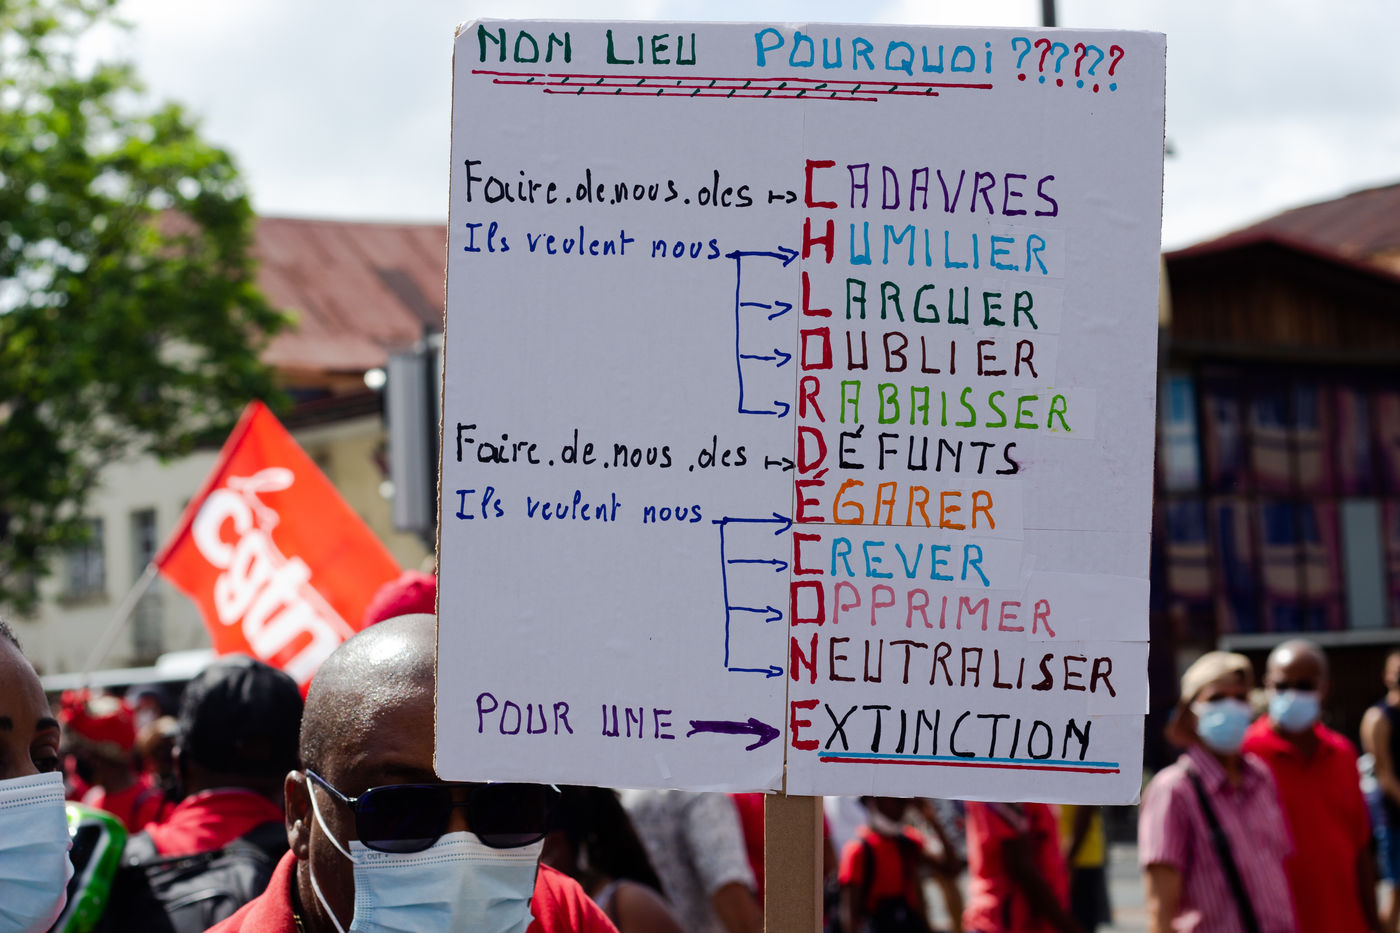 NON LIEU POURQUOi ??????
Faire.de.nous.des CADAVRES
Ils veulent nous HUMILIER
LARGUER
OUBLIER
RABAISSER
Faire.de.nous.des DÉFUNTS
Ils veulent nous ÉGARER
CREVER
OPPRIMER
NEUTRALISER
POUR UNE EXTINCTION
la
cgtm
OUT